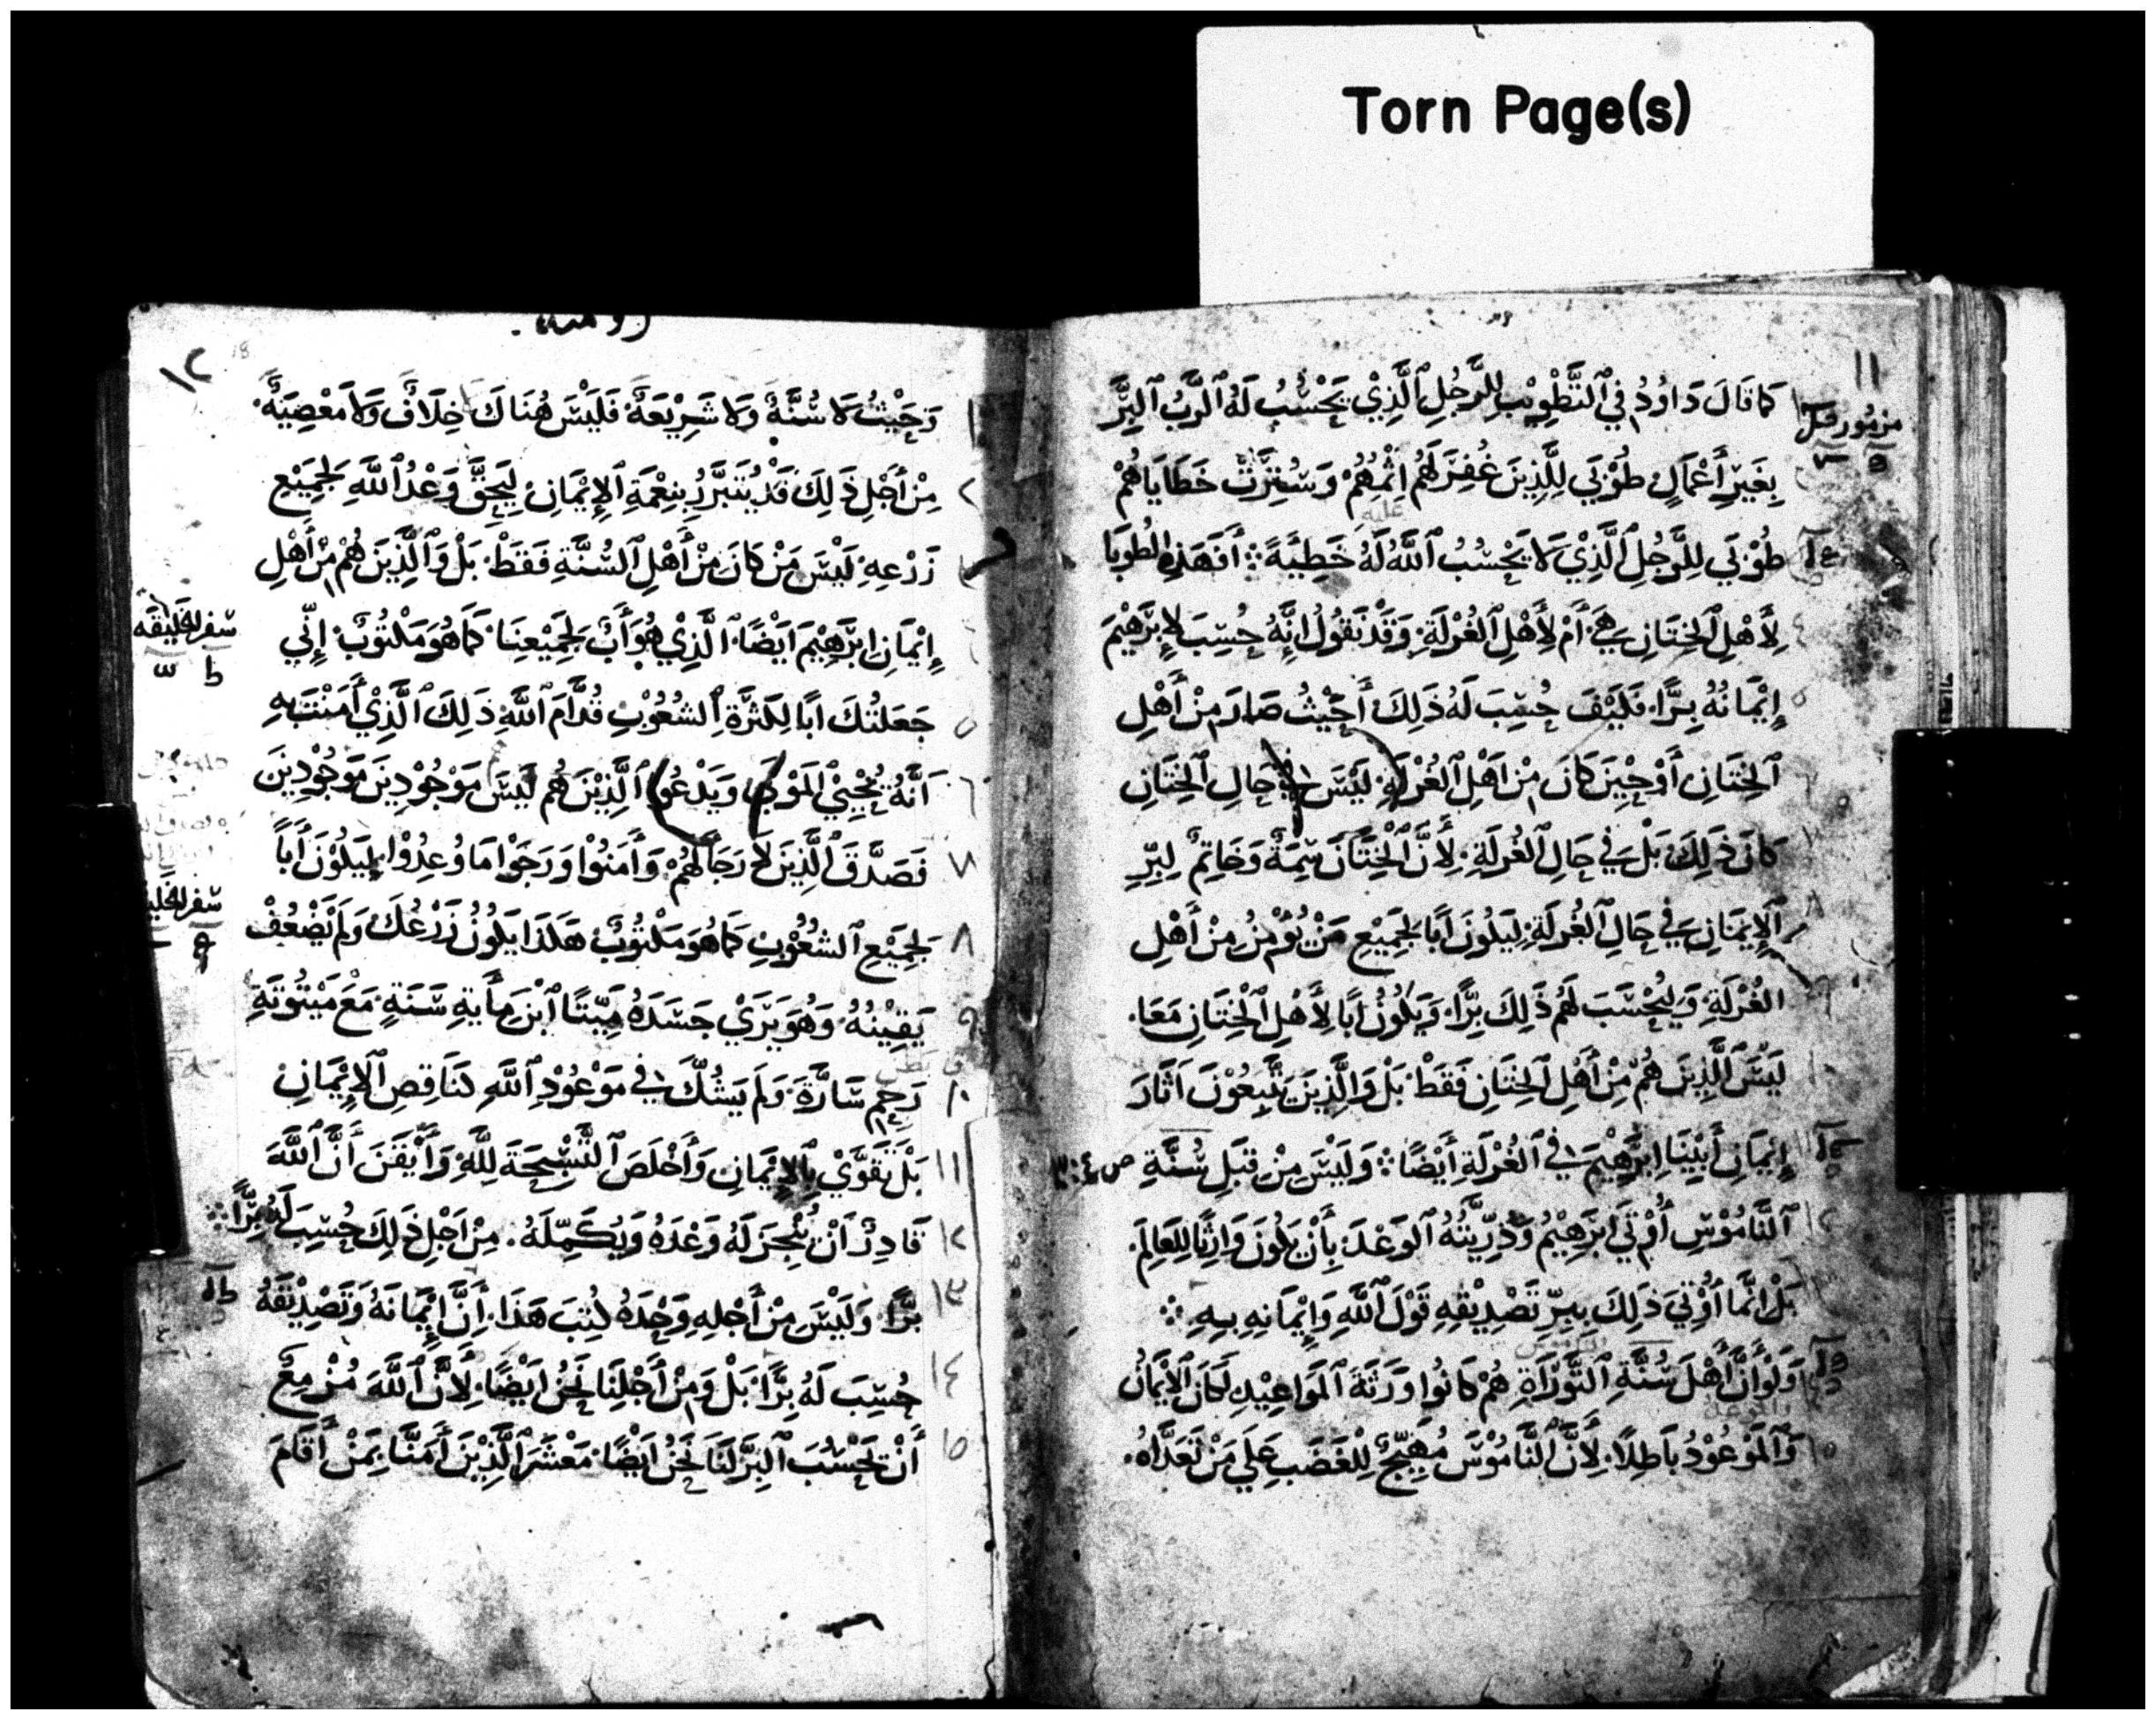 Torn Page(s)
١١
كَمَا قَالَ دَاوُدُ فِي ٱلتَّطْوِيْبِ لِلرَّجُلِ ٱلَّذِيْ يَحْسُبُ لَهُ ٱلرَّبُ ٱلبِرَّ
مزمور
بِغَيْرِ أَعْمَالٍ طُوْبَي لِلَّذِينَ غُفِرَ لَهُم اِثْمُهُمْ وَسُتِرَتْ خَطَايَاهُمْ
عليه
طُوْبَي لِلرَّجُلِ ٱلَّذِيْ لَا يَحْسُبُ ٱللَّهُ لَهُ خَطِيَةً ܀ أَفَهَذِهِ الطُوبَا
لِأَهْلِ ٱلخِتَانِ هِيَ أَمْ لِأَهْلِ ٱلغُرْلَةِ وَقَدْ نَقُولُ اِنَّهُ حُسِبَ لِإِبْرَٰهِيْمَ
إِيْمَانُهُ بِرًّا فَكَيْفَ حُسِبَ لَهُ ذَلِكَ أَحَيْثُ صَارَ مِنْ أَهْلِ
ٱلخِتَانِ أَوْ حِيْنَ كَانَ مِنْ اَهْلِ ٱلغُرْلَةِ لَيْسَ فِي حَالِ ٱلخِتَانِ
كَانَ ذَلِكَ بَلْ فِي حَالِ ٱلغُرْلَةِ لِأَنَّ ٱلْخِتَانَ سِمَةٌ وَخَاتِمٌ لِبِرِّ
ٱلْإِيمَانِ فِي حَالِ ٱلغُرْلَةِ لِيَكُونَ اَبًا لِجَمِيْعِ مَنْ يُؤْمِنُ مِنْ أَهْلِ
الغُرْلَةِ وَلِيُحْسَبَ لَهُم ذَلِكَ بِرًّا وَيَكُونُ اَبًا لِأَهْلِ ٱلْخِتَانِ مَعَا.
لَيْسَ ٱلَّذِينَ هُمْ مِنْ أَهْلِ ٱلخِتَانِ فَقَطْ بَلْ وَالَّذِينَ يَتْبَعُوْنَ اَثَارَ
إِيْمَانِ أَبِيْنَا اِبْرَٰهِيْمَ فِي ٱلغُرْلَةِ أَيْضًا ܀ وَلَيْسَ مِنْ قِبَلِ سُنَّةِ
ٱلنَّامُوْسِ أُوْتَي اِبْرَٰهِيْمُ وَذُرِّيَّتُهُ ٱلوَعْدَ بِأَنْ يَكُونَ وَارِثًا لِلْعَالَمِ.
بَلْ اِنَّمَا أُوْتِيَ ذَلِكَ بِبِرِّ تَصْدِيْقِهِ قَوْلَ ٱللَّهِ وَاِيْمَانِهِ بِهِ ܀
وَلَوْ أَنَّ أَهْلَ سُنَّةِ ٱلتَّوْرَٰةِ هُمْ كَانُوا وَرَثَةَ ٱلمَوَاعِيْدِ لَكَانَ ٱلْإِيْمَانُ
وَٱلمَوْعُوْدُ بَاطِلًا. لِأَنَّ ٱلنَّامُوْسَ مُهَيِّجٌ لِلْغَضَبِ عَلَي مَنْ تَعَدَّاهُ.
١٢
18
١ وَحَيْثُ لَا سُنَّةٌ وَلَا شَرِيْعَةٌ فَلَيْسَ هُنَاكَ خِلَافٌ وَلَا مَعْصِيَةٌ.
٢ مِنْ أَجْلِ ذَلِكَ قَدْ يُتَبَرَّرُ بِنِعْمَةِ ٱلْإِيْمَانِ لِيَحِقَّ وَعْدُ ٱللَّهِ لِجَمِيْعِ
زَرْعِهِ لَيْسَ مَنْ كَانَ مِنْ أَهْلِ ٱلسُّنَّةِ فَقَطْ بَلْ وَٱلَّذِينَ هُمْ مِنْ أَهْلِ
سفر الخليقه
إِيْمَانِ اِبْرَٰهِيْمَ اَيْضًا ٱلَّذِيْ هُوَ أَبٌ لِجَمِيْعِنَا كَمَا هُوَ مَكْتُوْبٌ إِنّي
٥ جَعَلْتُكَ اَبًا لِكَثْرَةِ ٱلشُعُوْبِ قُدَّامَ ٱللَّهِ ذَلِكَ ٱلَّذِيْ أَمَنْتَ بِهِ
٦ اَنَّهُ يُحْيِيْ ٱلمَوْتَي وَيَدْعُو ٱلَّذِيْنَ هُم لَيْسَ مَوْجُوْدِيْنَ مَوْجُوْدِيْنَ
٧ فَصَدَّقَ ٱلَّذِينَ لَا رَجَأَ لَهُمْ وَأَمَنُوا وَرَجَوْا مَا وُعِدُوْا لِيَكُوْنَ أَبَاً
سفر الخليقه
٨ لِجَمِيْعِ ٱلشُعُوْبِ كَمَا هُوَ مَكْتُوْبٌ هَكَذَا يَكُونُ زَرْعُكَ وَلَمْ يَضْعُفْ
٩ يَقِيْنُهُ وَهُوَ يَرَي جَسَدَهُ مَيِّتًا ٱبْنَ مِأَيةِ سَنَةٍ مَعَ مَيْتُوْتَةِ
١٠ رَحِمِ سَارَّةَ. وَلَمْ يَشُكَّ فِي مَوْعُوْدِ ٱللَّهِ كَنَاقِصِ ٱلْإِيْمَانِ
١١ بَلْ تَقَوَّيْ بِٱلْإِيْمَانِ وَأَخْلَصَ ٱلتَّسْبِحَةَ لِلَّهِ وَأَيْقَنَ أَنَّ ٱللَّهَ
١٢ قَادِرٌ اَنْ يُنْجِزَ لَهُ وَعْدَهُ وَيُكَمِّلَهُ. مِنْ اَجْلِ ذَلِكَ حُسِبَ لَهُ بِرًّا ܀
١٣ بِرًّا وَلَيْسَ مِنْ أَجْلِهِ وَحْدَهُ كُتِبَ هَذَا. أَنَّ إِيْمَانَهُ وَتَصْدِيْقَهُ
١٤ حُسِبَ لَهُ بِرًّا بَلْ وَمِنْ أَجْلِنَا نَحْنُ اَيْضًا لِأَنَّ ٱللَّهَ مُزْمِعٌ
١٥ أَنْ يَحْسُبَ ٱلبِرَّ لَنَا نَحْنُ اَيْضًا مَعْشَرَ ٱلَّذِيْنَ أَمَنَّا بِمَنْ أَقَامَ